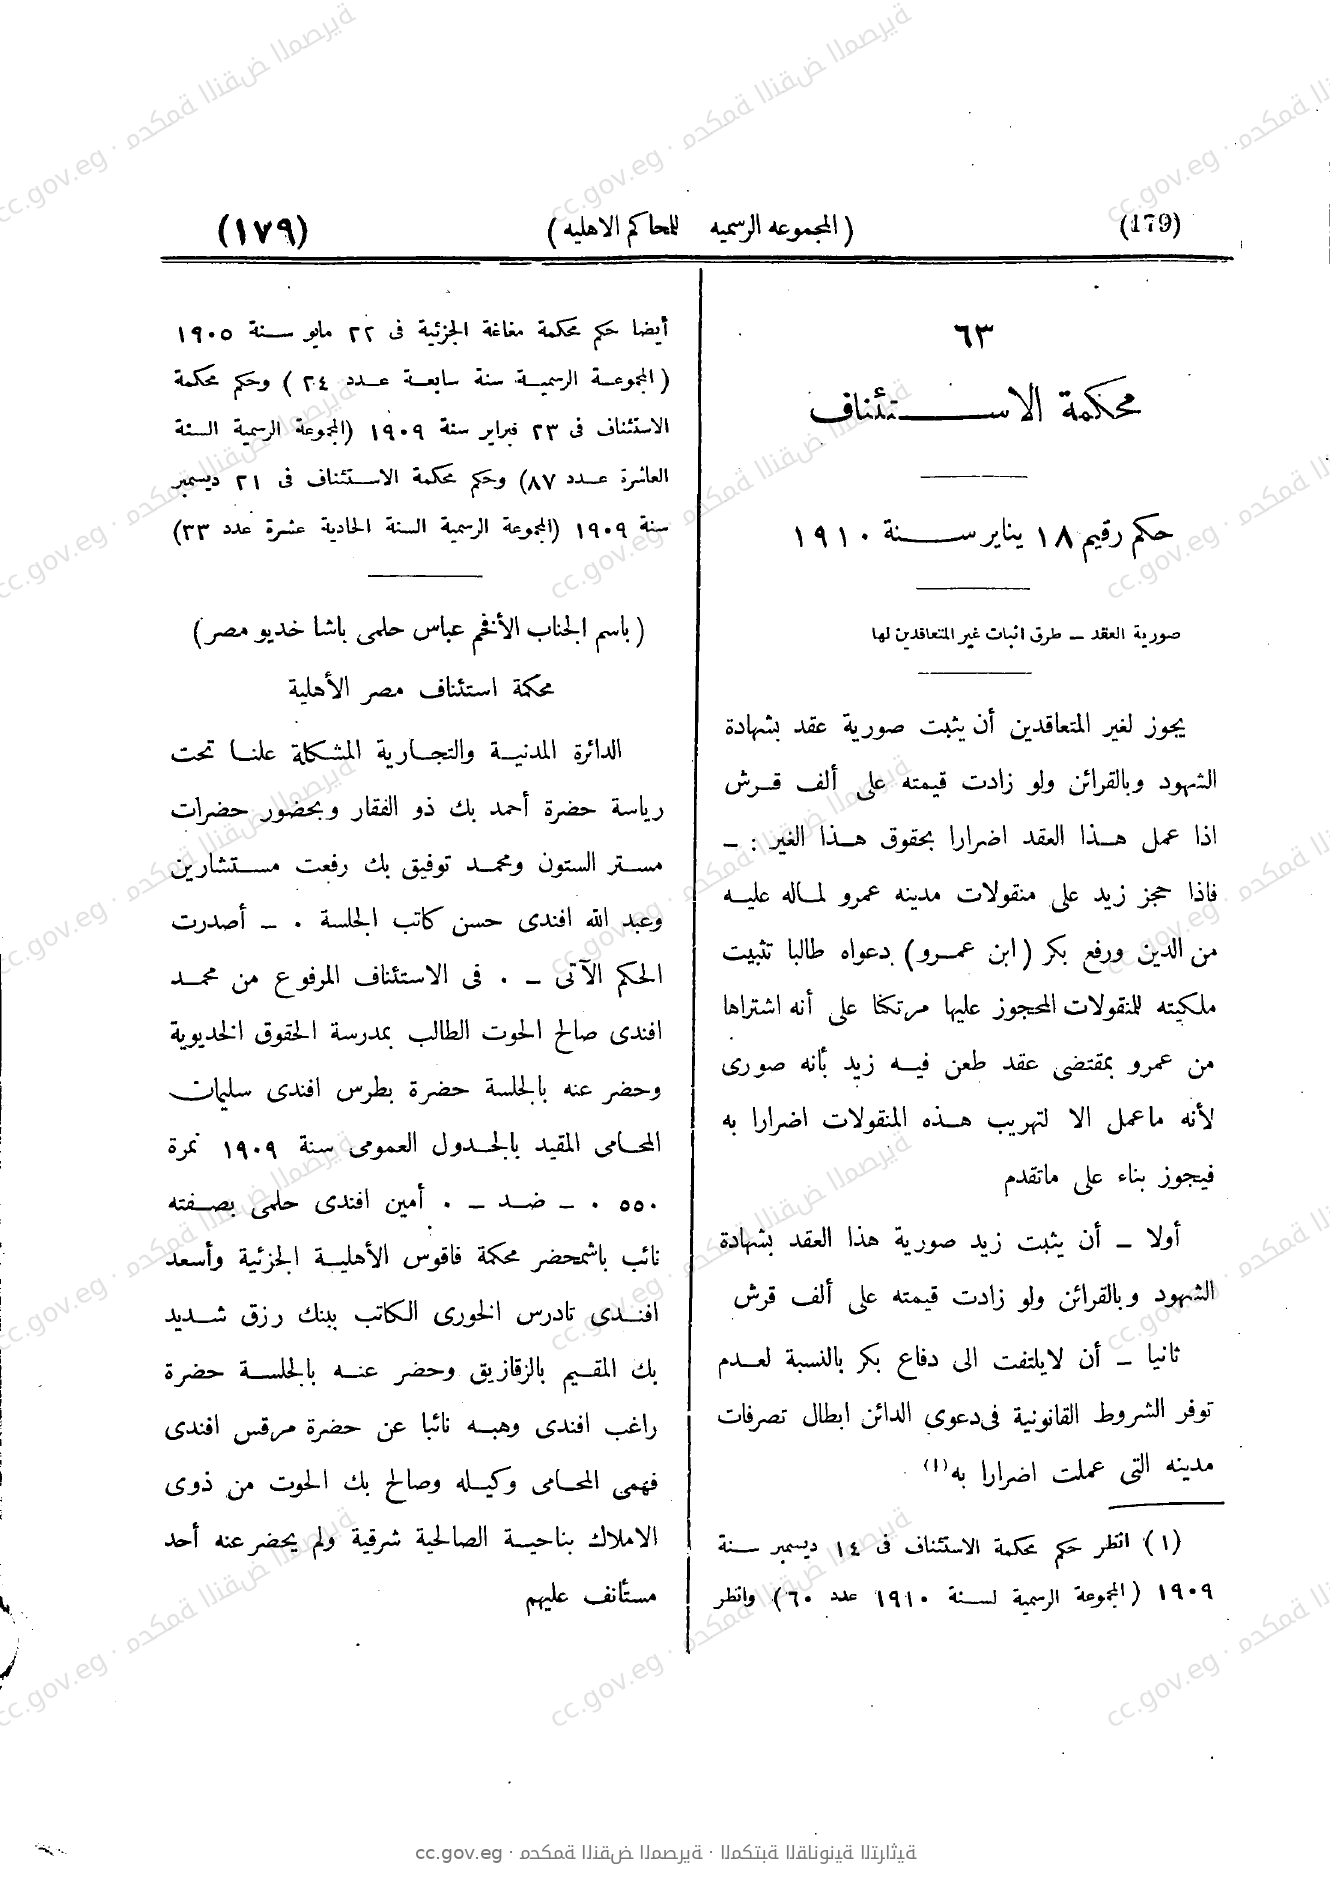 (179)
( المجموعه الرسميه للمحاكم الاهليه )
(١٧٩)
٦٣
محكمة الاســـتئناف
حكم رقيم ١٨ يناير ســـنة ١٩١٠
صورية العقد ــ طرق اثبات غير المتعاقدين لها
يجوز لغير المتعاقدين أن يثبت صورية عقد بشهادة
الشهود وبالقرائن ولو زادت قيمته على ألف قـرش
اذا عمل هـذا العقد اضرارا بحقوق هـذا الغير : ــ
فاذا حجز زيد على منقولات مدينه عمرو لمـاله عليـه
من الدين ورفع بكر ( ابن عمـرو ) دعواه طالبا تثبيت
ملكيته للمنقولات المحجوز عليها مرتكنا على أنه اشتراها
من عمرو بمقتضى عقد طعن فيـه زيد بأنه صورى
لأنه ماعمل الا لتهريب هـذه المنقولات اضرارا به
فيجوز بناء على ماتقدم
أولا ــ أن يثبت زيد صورية هذا العقد بشهادة
الشهود وبالقرائن ولو زادت قيمته على ألف قرش
ثانيا ــ أن لايلتفت الى دفاع بكر بالنسبة لعـدم
توفر الشروط القانونية فى دعوى الدائن ابطال تصرفات
مدينه التى عملت اضرارا به (١)
(١) انظر حكم محكمة الاستئناف فى ١٤ ديسمبر سـنة
١٩٠٩ (المجموعة الرسمية لسـنة ١٩١٠ عدد ٦٠) وانظر
أيضا حكم محكمة مغاغة الجزئية فى ٢٢ مايو سـنة ١٩٠٥
( المجموعـة الرسميـة سنة سابعـة عـدد ٢٤ ) وحكم محكمة
الاستئناف فى ٢٣ فبراير سنة ١٩٠٩ (المجموعة الرسمية السنة
العاشرة عـدد ٨٧) وحكم محكمة الاسـتئناف فى ٢١ ديسمبر
سنة ١٩٠٩ (المجموعة الرسمية السنة الحادية عشرة عدد ٣٣)
( باسم الجناب الأفخم عباس حلمى باشا خديو مصر )
محكمة استئناف مصر الأهلية
الدائرة المدنيـة والتجـارية المشكلة علنـا تحت
رياسة حضرة أحمد بك ذو الفقار وبحضور حضرات
مسـتر الستون ومحمـد توفيق بك رفعت مسـتشارين
وعبد الله افندى حسن كاتب الجلسة . ــ أصدرت
الحكم الآتى ــ . فى الاستئناف المرفوع من محمـد
افندى صالح الحوت الطالب بمدرسة الحقوق الخديوية
وحضر عنه بالجلسة حضرة بطرس افندى سليمان
المحـامى المقيد بالجـدول العمومى سنة ١٩٠٩ نمرة
٥٥٠ . ــ ضـد ــ . أمين افندى حلمى بصـفته
نائب باشمحضر محكمة فاقوس الأهليـة الجزئية وأسعد
افنـدى تادرس الخورى الكاتب ببنك رزق شـديد
بك المقـيم بالزقازيق وحضر عنـه بالجلسـة حضرة
راغب افندى وهبـه نائبا عن حضرة مرقس افندى
فهمى المحـامى وكيـله وصالح بك الحوت من ذوى
الاملاك بناحيـة الصالحية شرقية ولم يحضر عنه أحد
مستأنف عليهم
cc.gov.eg · محكمة النقض المصرية · المكتبة القانونية التراثية